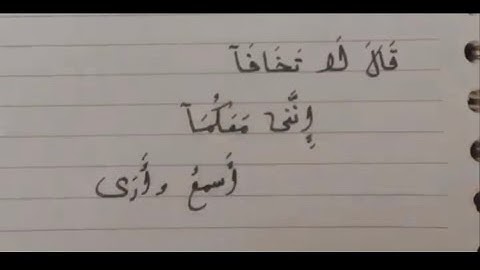 قَالَ لَا تَخَافَآ
إِنَّنِى مَعَكُمَآ
أَسمَعُ وأَرَى